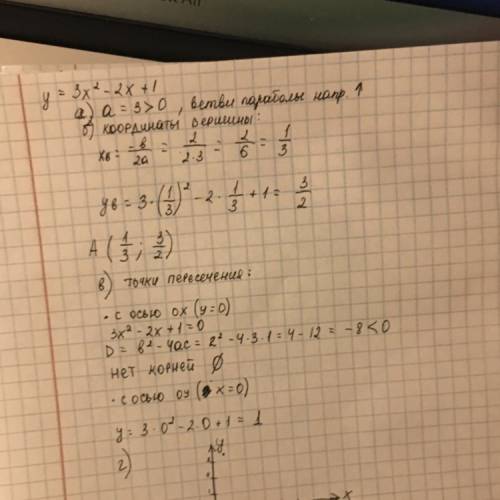 y = 3x² - 2x + 1
а) a = 3 > 0, ветви параболы напр. ↑
б) координаты вершины:
xв = -в/2a = 2/2·3 = 2/6 = 1/3
yв = 3·(1/3)² - 2·1/3 + 1 = 3/2
A (1/3; 3/2)
в) точки пересечения:
• с осью ox (y=0)
3x² - 2x + 1 = 0
D = в² - 4ac = 2² - 4·3·1 = 4 - 12 = -8 < 0
нет корней Ø
• с осью oy (x=0)
y = 3·0² - 2·0 + 1 = 1
г)
y
x